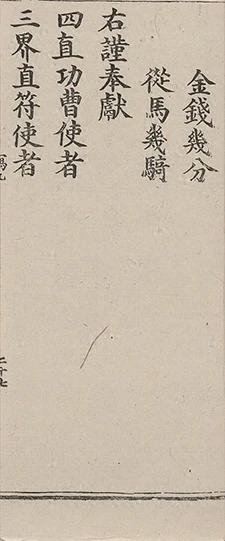 金錢幾分
從馬幾騎
右謹奉獻
四直功曹使者
三界直符使者
二十七